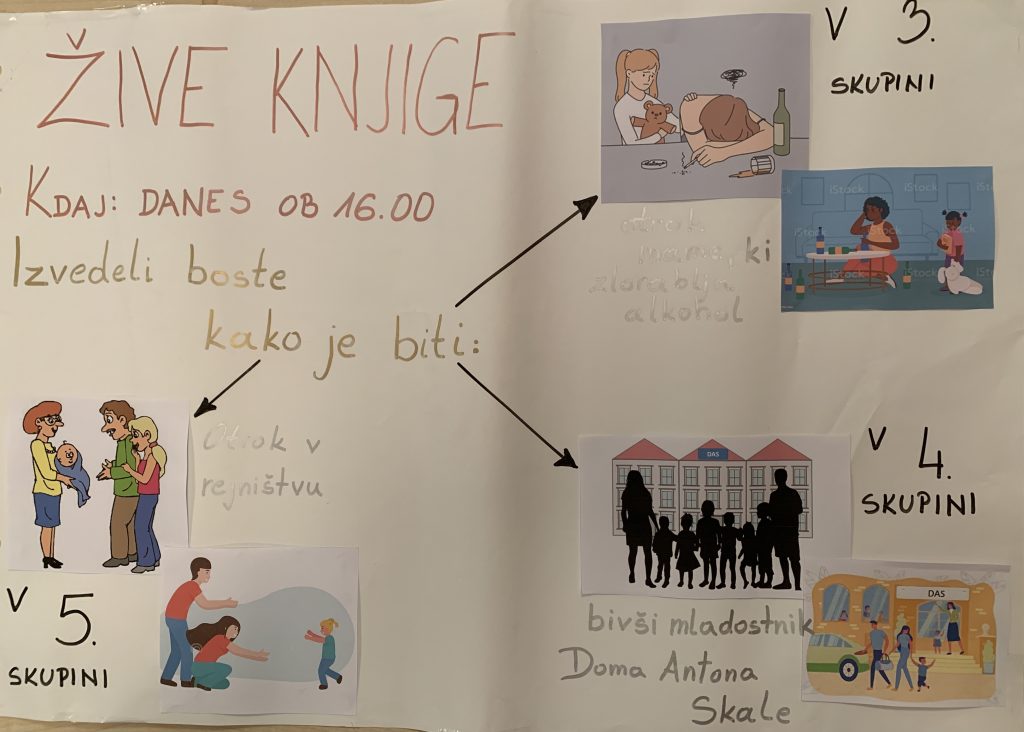 ŽIVE KNJIGE
KDAJ: DANES OB 16.00
Izvedeli boste
kako je biti:
V 3.
SKUPINI
iStock
iStock
iStock
iStock
otrok
mame, ki
zlorablja
alkohol
Otrok v
rejništvu
V 5.
SKUPINI
DAS
V 4.
SKUPINI
DAS
bivši mladostnik
Doma Antona
Skale